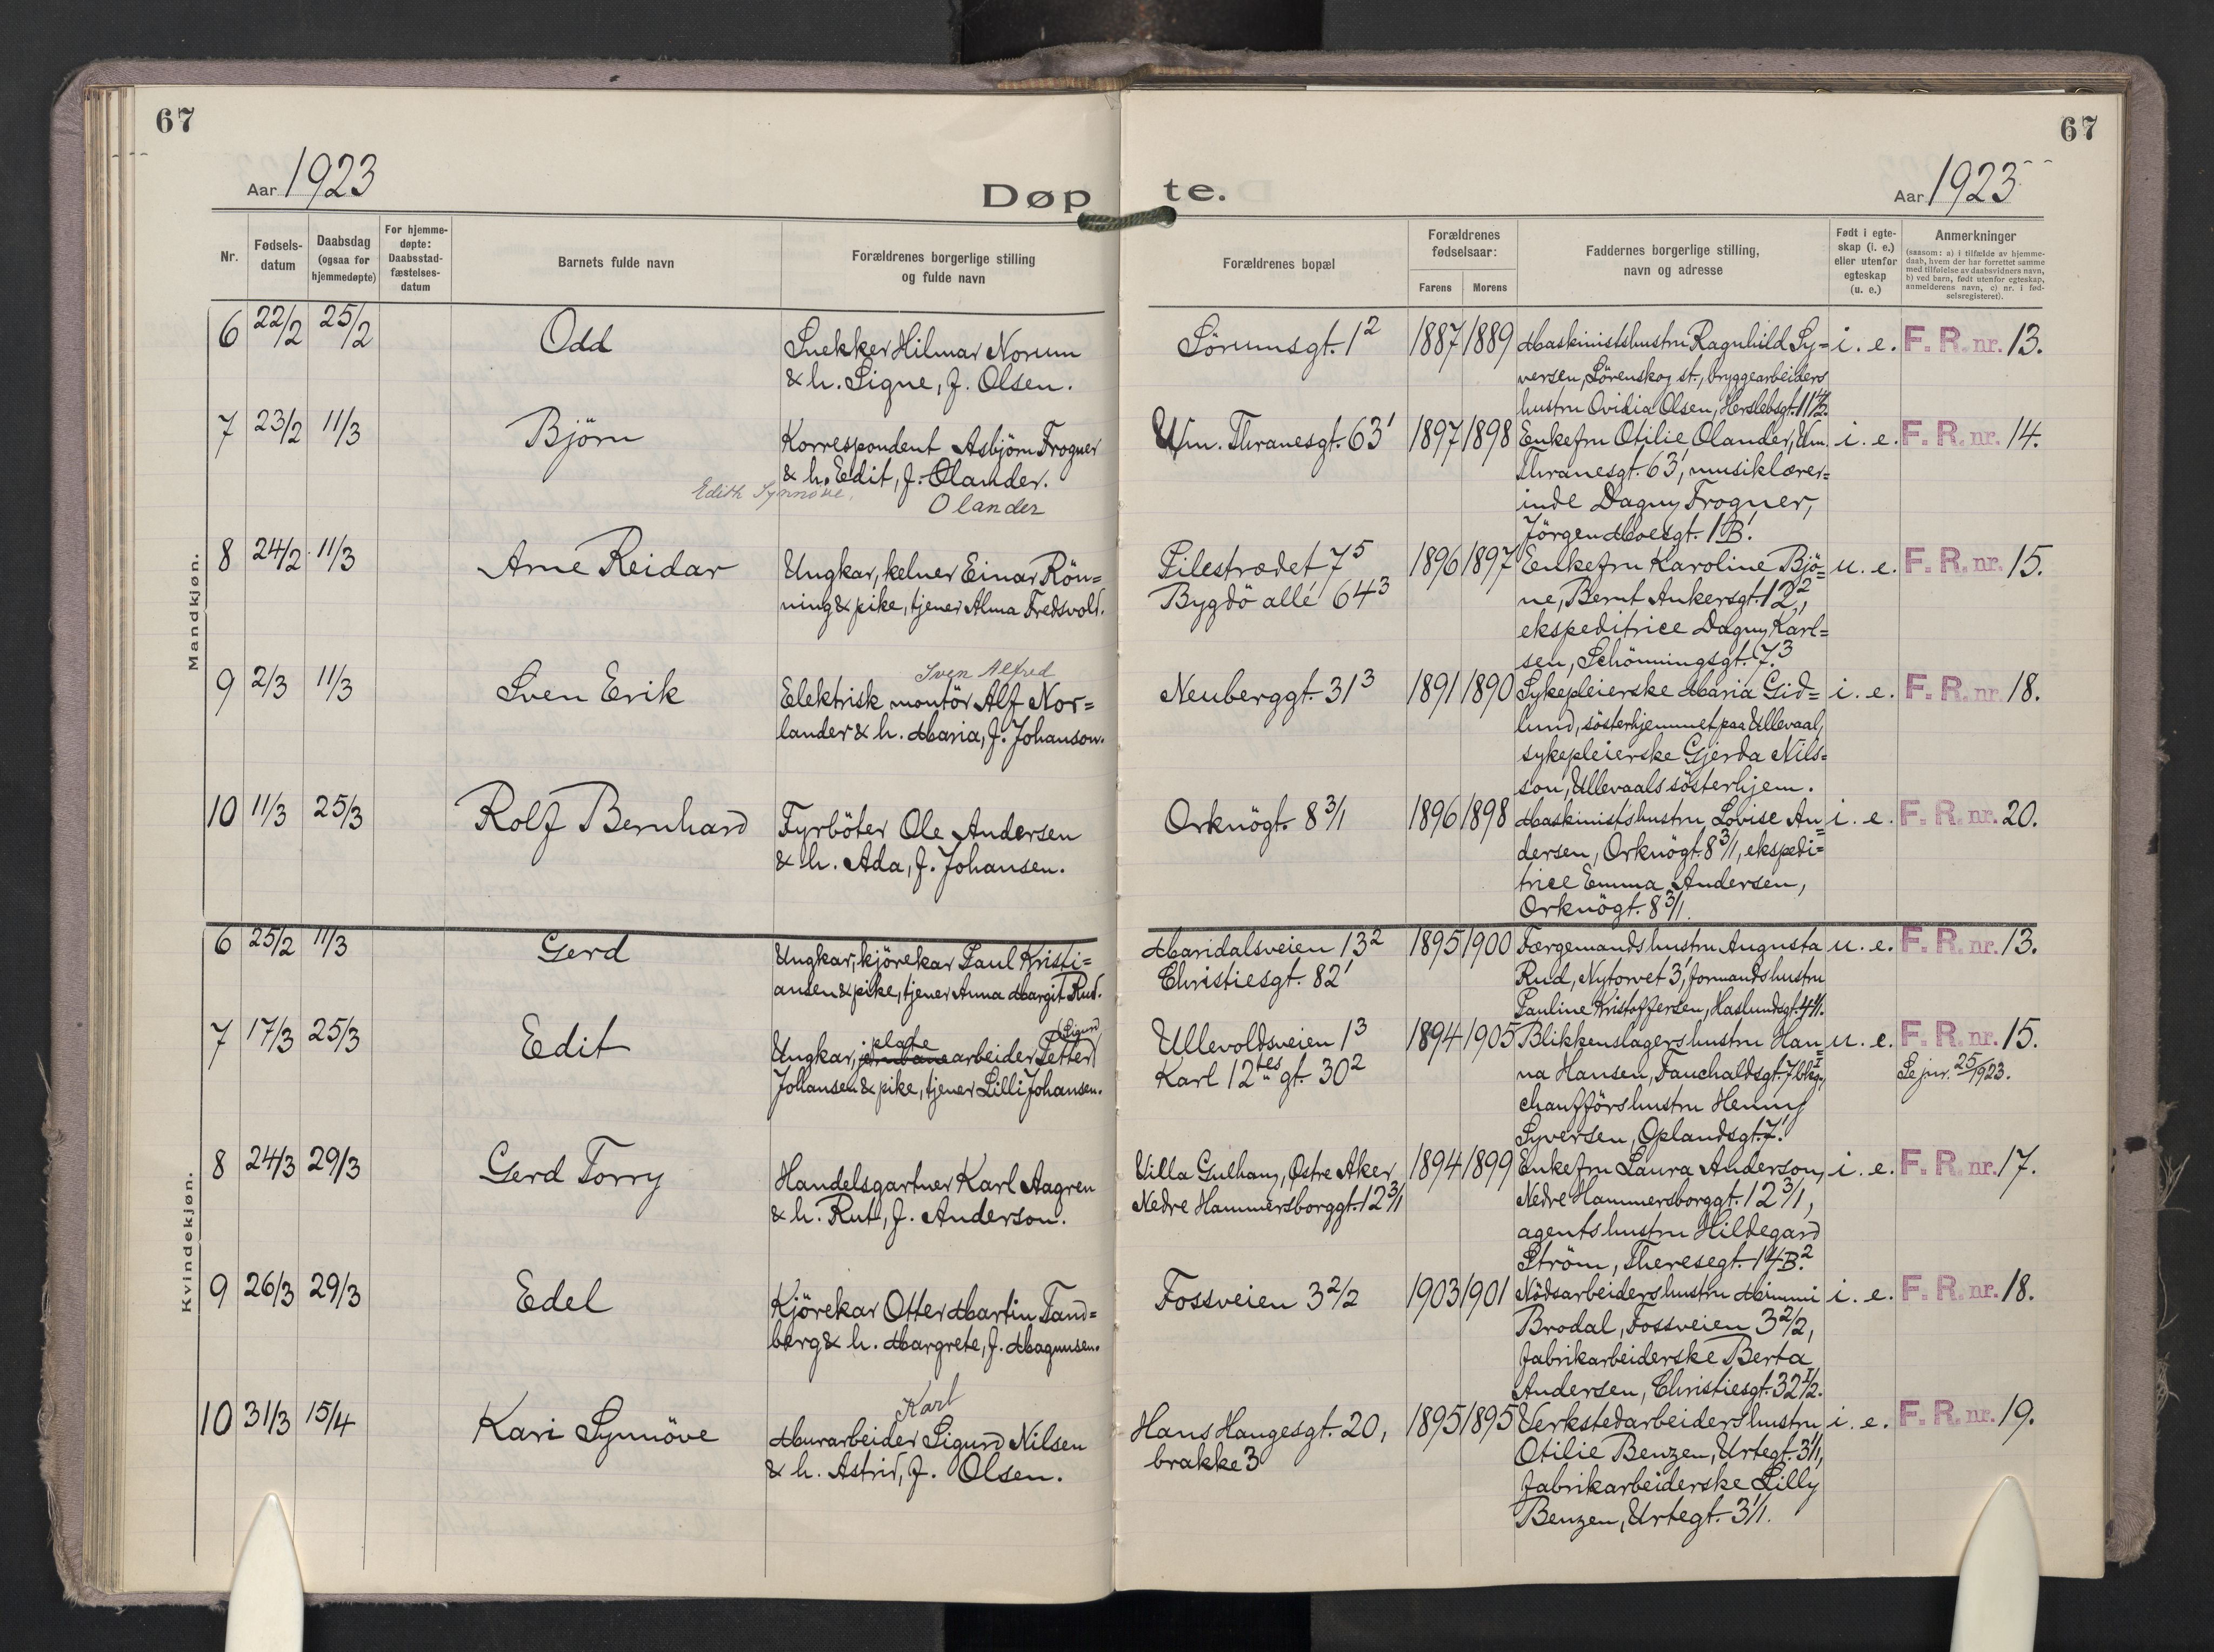 67
67
Aar 1923
Døpte.
Aar 1923
Nr.
Fødselsdatum
Daabsdag (ogsaa for hjemmedøpte)
For hjemmedøpte: Daabsstadfæstelsesdatum
Barnets fulde navn
Forældrenes borgerlige stilling og fulde navn
Forældrenes bopæl
Forældrenes fødselsaar:
Farens
Morens
Faddernes borgerlige stilling, navn og adresse
Født i egteskap (i. e.) eller utenfor egteskap (u. e.)
Anmerkninger
(saasom: a) i tilfælde av hjemmedaab, hvem der har forrettet samme med tilføielse av daabsvidners navn, b) ved barn, født utenfor egteskap, anmelderens navn, c) nr. i fødselsregisteret).
Mandkjøn.
6 22/2 25/2 Odd
Snekker Hilmar Norum
& h. Signe, f. Olsen.
Sörumsgt. 1²
1887 1889
Maskinistshustru Ragnhild Sy=
versen, Sörenskog st., bryggearbeiders
hustru Ovidia Olsen, Herslebsgt. 11
i. e. F. R. nr. 13.
7 23/2 11/3 Björn
Korrespondent Asbjörn Frogner
& h. Edit, f. Olander.
Edith Synnöve,
Olander
Wm. Thranesgt. 63'
1897 1898
Enkefru Otilie Olander, Wm.
Thranesgt. 63', musiklærer=
inde Dagny Frogner,
Jörgen Moesgt. 1B'.
i. e. F. R. nr. 14.
8 24/2 11/3 Arne Reidar
Ungkar, kelner Einar Rön=
ning & pike, tjener Alma Fredsvold.
Pilestrædet 7⁵
Bygdö allé 64³
1896 1897
Enkefru Karoline Bjö=
ne, Bernt Ankersgt. 12²,
ekspeditrice Dagny Karl=
sen, Schönningsgt. 7³
u. e. F. R. nr. 15.
9 2/3 11/3 Sven Erik
Sven Alfred
Elektrisk montör Alf Nor=
lander & h. Maria, f. Johanson.
Neuberggt. 31³
1891 1890
Sykepleierske Maria Gid=
lund, sösterhjemmet paa Ullevaal,
sykepleierske Gjerda Nils=
son, Ullevaals sösterhjem.
i. e. F. R. nr. 18.
10 11/3 25/3 Rolf Bernhard
Fyrböter Ole Andersen
& h. Ada, f. Johansen.
Orknögt. 8 3/1
1896 1898
Maskinistshustru Lovise An=
dersen, Orknögt. 8 3/1, ekspedi=
trice Emma Andersen,
Orknögt. 8 3/1.
i. e. F. R. nr. 20.
Kvindekjøn.
6 25/2 11/3 Gerd
Ungkar, kjörekar Paul Kristi=
ansen & pike, tjener Anna Margit Rud.
Maridalsveien 13²
Christiesgt. 82'
1895 1900
Færgemandshustru Augusta
Rud, Nytorvet 3', formandshustru
Pauline Kristoffersen, Haslundsgt.
u. e. F. R. nr. 13.
7 17/3 25/3 Edit
plate (Sigurd)
Ungkar, jernbanearbeider Petter
Johansen & pike, tjener Lilli Johansen.
Ullevoldsveien 1³
Karl 12tes gt. 30²
1894 1905
Blikkenslagershustru Han=
na Hansen, Fauchaldsgt. 7
chaufförshustru Henny
Syversen, Oplandsgt. 7'.
u. e. F. R. nr. 15.
Se jnr. 25/1923.
8 24/3 29/3 Gerd Torry
Handelsgartner Karl Aagren
& h. Rut, f. Anderson.
Villa Gulhaug, Østre Aker
Nedre Hammersborggt. 12 3/1
1894 1899
Enkefru Laura Anderson,
Nedre Hammersborggt. 12 3/1,
agentshustru Hildegard
Ström, Theresegt. 14B.²
i. e. F. R. nr. 17.
9 26/3 29/3 Edel
Kjörekar Otter Martin Tand=
berg & h. Margrete, f. Magnusen.
Fossveien 3 2/2
1903 1901
Nödsarbeidershustru Mimmi
Brodal, Fossveien 3 2/2,
fabrikarbeiderske Berta
Andersen, Christiesgt. 32 1/2.
i. e. F. R. nr. 18.
10 31/3 15/4 Kari Synnöve
Karl
Murarbeider Sigurd Nilsen
& h. Astrid, f. Olsen.
Hans Haugesgt. 20,
brakke 3
1895 1895
Verkstedarbeidershustru
Otilie Benzen, Urtegt. 3 1/1,
fabrikarbeiderske Lilly
Benzen, Urtegt. 3 1/1.
i. e. F. R. nr. 19.